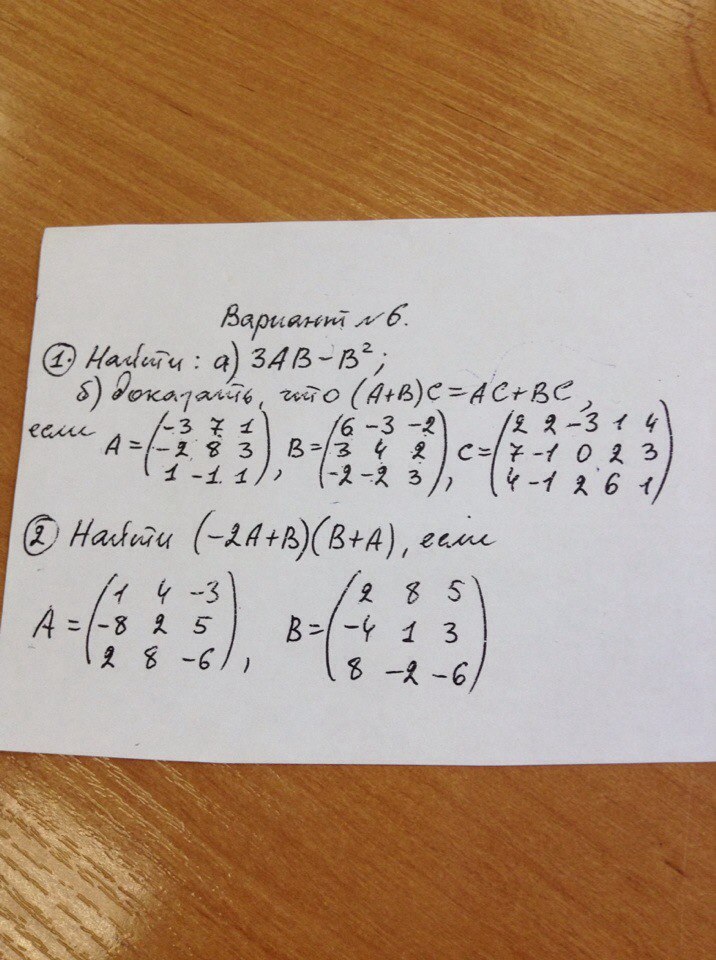 Вариант №6.
① Найти: а) 3AB-B²;
б) доказать, что (A+B)C=AC+BC,
если A=(-3 7 1 / -2 8 3 / 1 -1 1), B=(6 -3 -2 / 3 4 2 / -2 -2 3), C=(2 2 -3 1 4 / 7 -1 0 2 3 / 4 -1 2 6 1)
② Найти (-2A+B)(B+A), если
A=(1 4 -3 / -8 2 5 / 2 8 -6), B=(2 8 5 / -4 1 3 / 8 -2 -6)